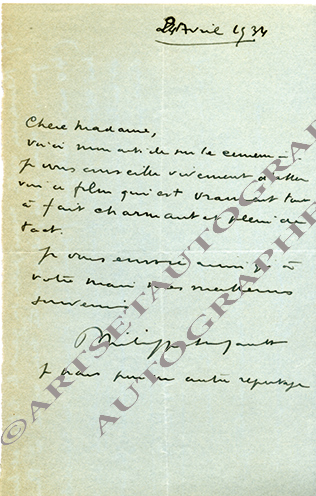 Avril 1934
Chère Madame,
voici mon article sur le cinéma –
je vous conseille vivement d'aller
voir ce film qui est vraiment tout
à fait charmant et plein de
tact.
Je vous envoie ainsi qu'à
votre mari mes meilleurs
souvenirs
Philippe
je vais faire un autre reportage
©ARTSETAUTOGRAPHES
AUTOGRAPHE